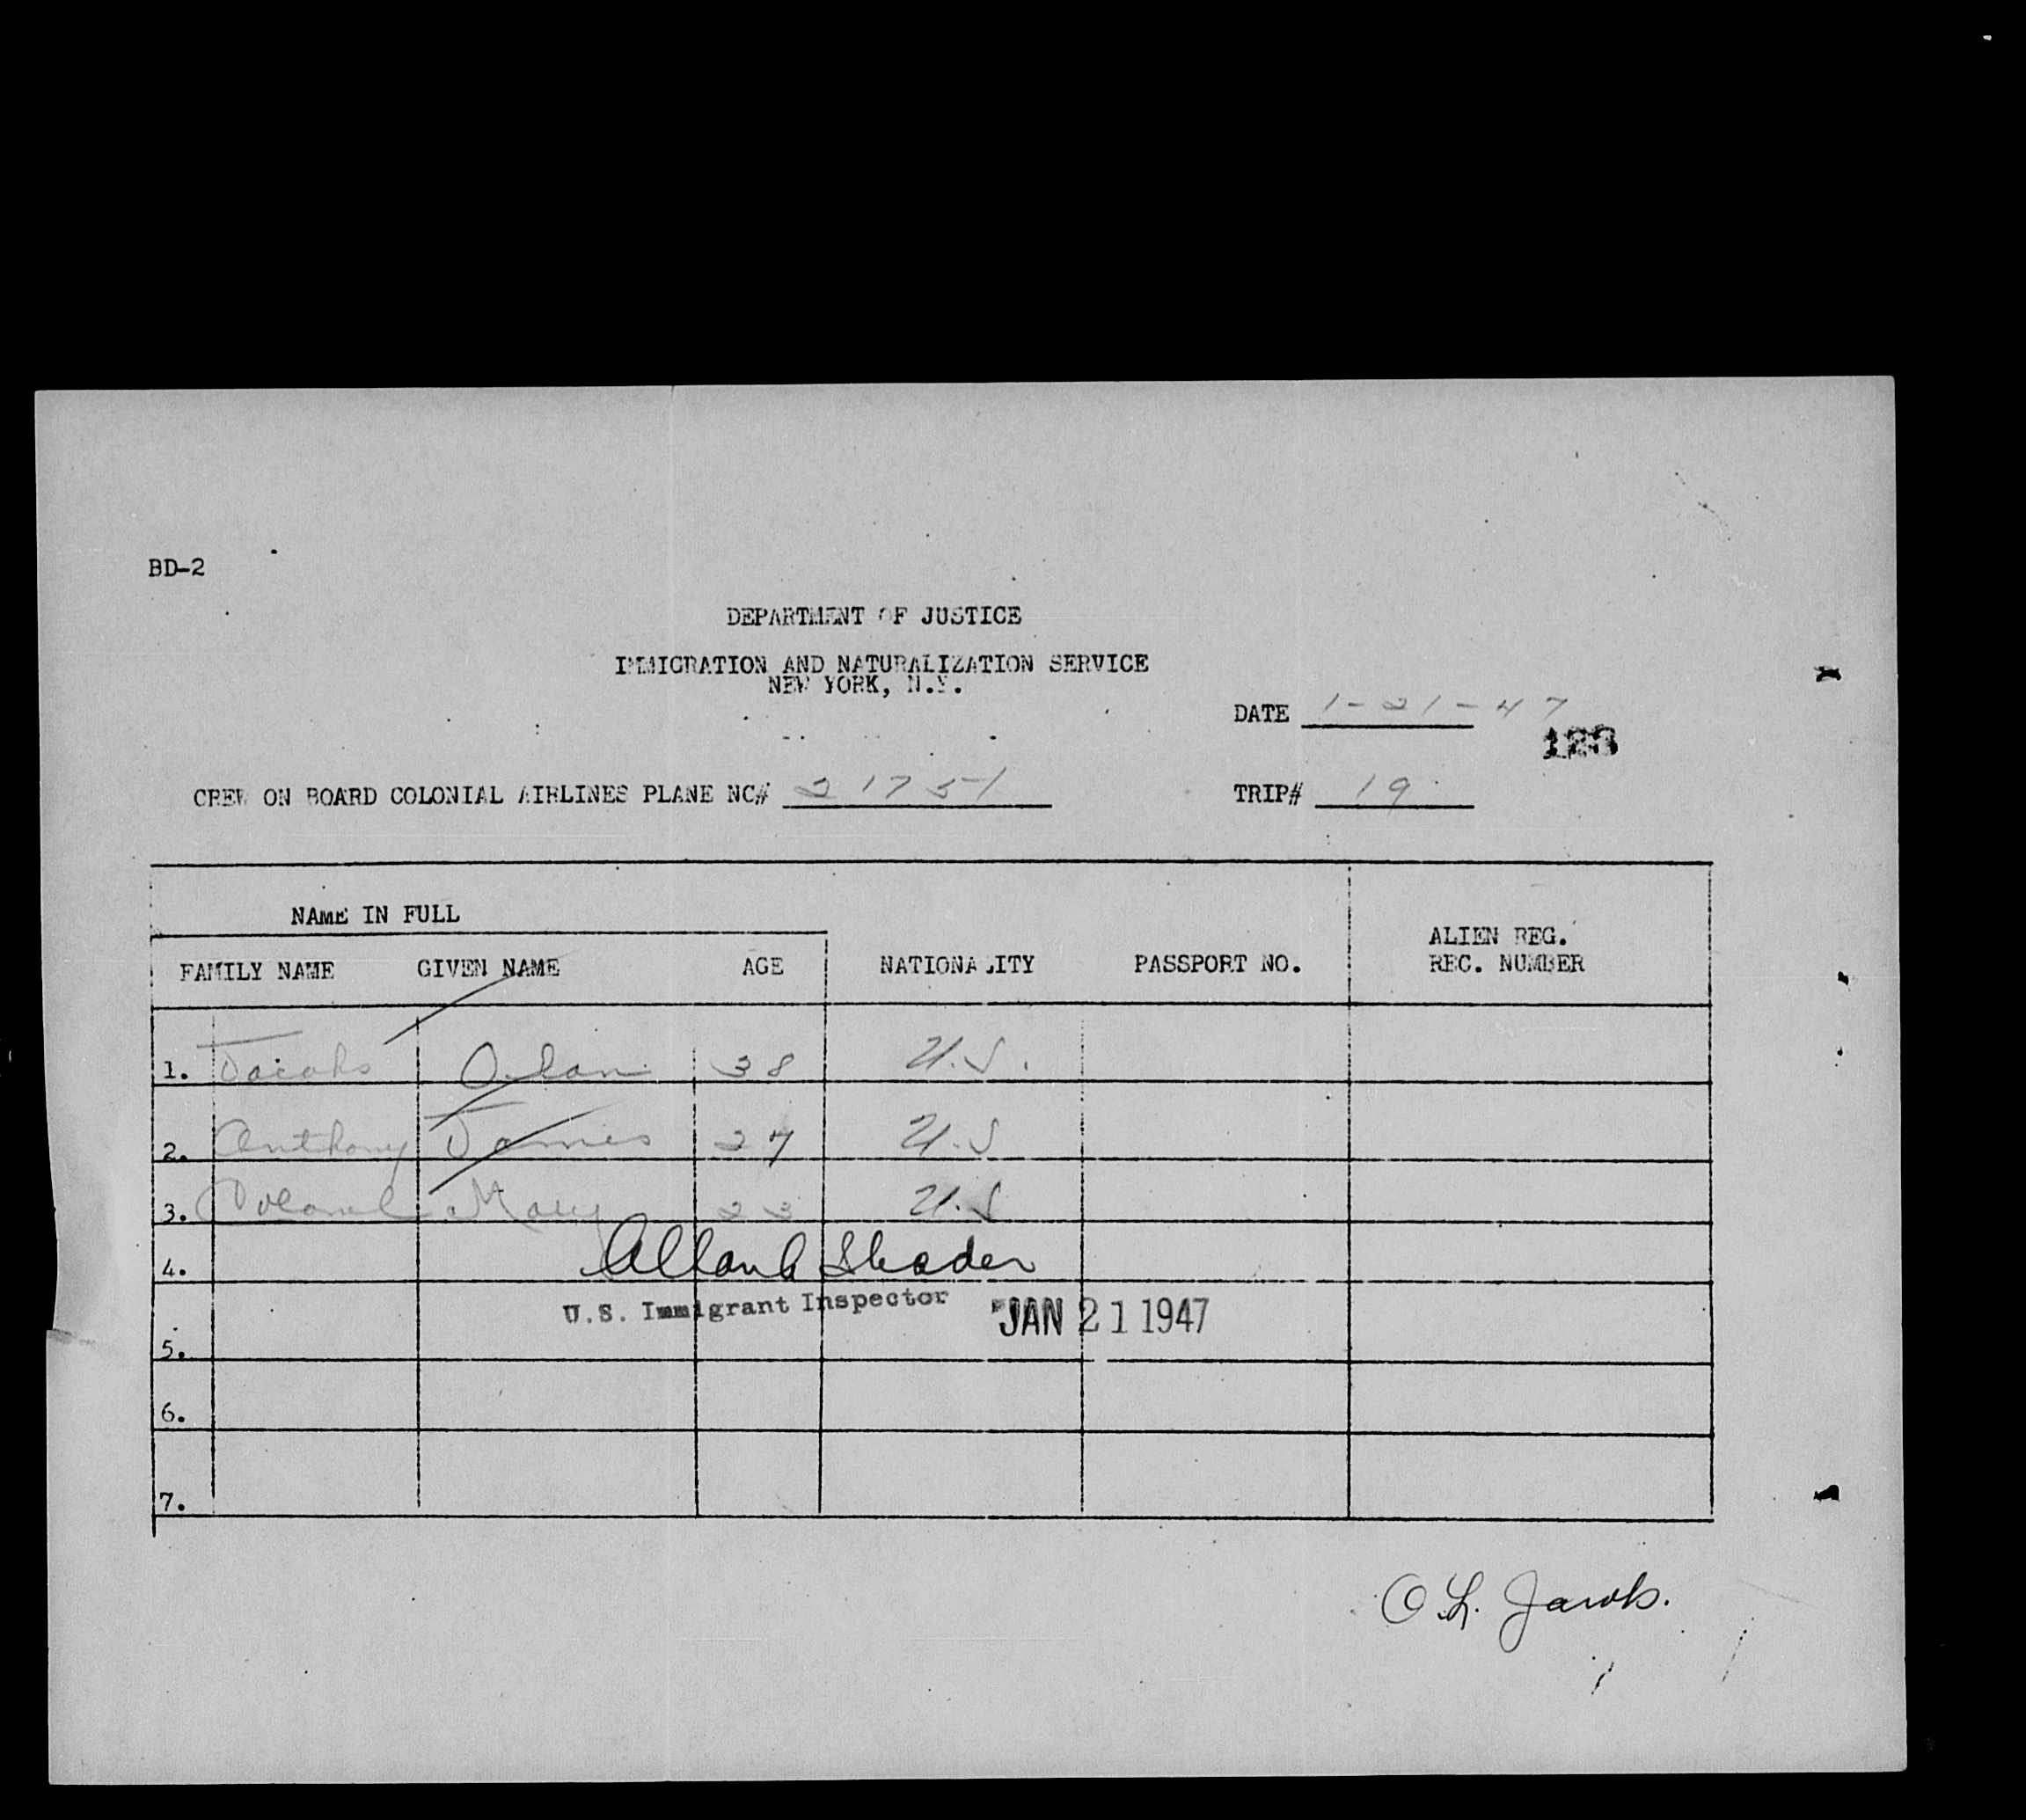 BD-2
DEPARTMENT OF JUSTICE
IMMIGRATION AND NATURALIZATION SERVICE
NEW YORK, N.Y.
DATE 1-21-47
123
CREW ON BOARD COLONIAL AIRLINES PLANE NC# 21751 TRIP# 19
NAME IN FULL
FAMILY NAME GIVEN NAME AGE NATIONALITY PASSPORT NO. ALIEN REG. REC. NUMBER
1. Jacobs Olan 38 U.S.
2. Anthony James 27 U.S
3. Mary 23 U.S
4. Shader
U.S. Immigrant Inspector JAN 21 1947
5.
6.
7.
O.L. Jacobs.